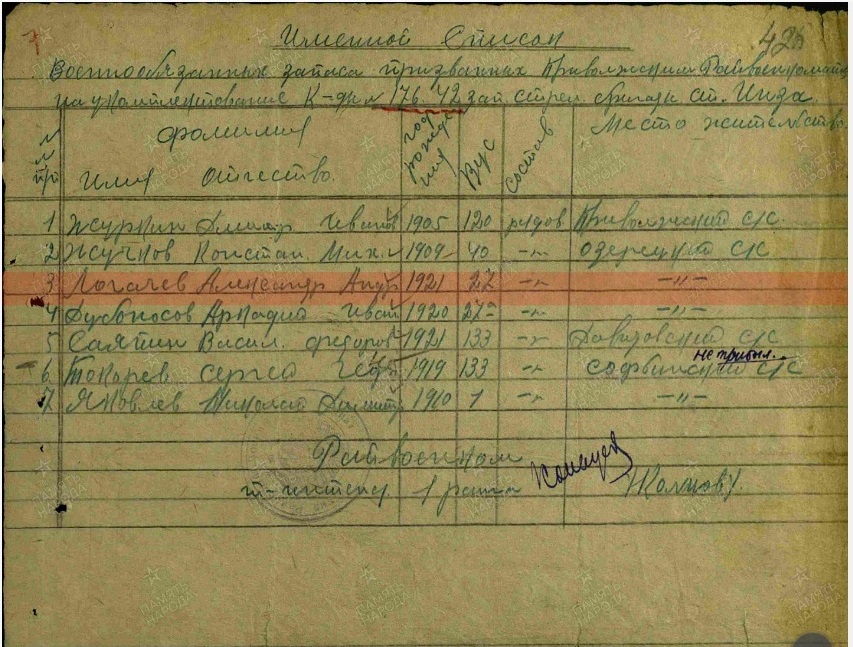 Именной Список
426
Военнообязанных запаса призванных Приволжским Райвоенкоматом
на укомплектование К-ды № 76. 42 зап. стрел. бригады ст. Инза.
№№ п/п
Фамилия Имя Отчество.
год рождения
ВУС
состав
Место жительства
1 Журкин Дмитр. Иванов 1905 120 рядов Приволжский с/с
2 Жучков Констан. Мих. 1909 40 -"- Озерецкий с/с
3 Логачев Александр Андр 1921 27 -"- -"-
4 Аркадий Иван 1920 27 -"- -"-
5 Васил. Федоров 1921 133 -"- Давыдовский с/с
не прибыл.
6 Токарев Сергей 1919 133 -"- с/с
7 Яковлев Николай Дмитр 1910 1 -"- -"-
Райвоенком
т-интенд. 1 ранга
ПАМЯТЬ НАРОДА